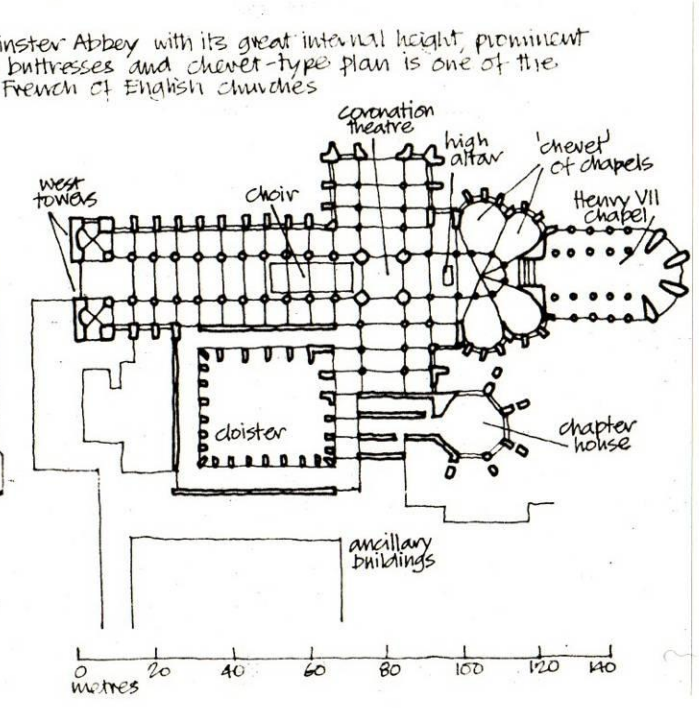 inster Abbey with its great internal height, prominent
buttresses and chevet-type plan is one of the
French of English churches
coronation
theatre
high
altar
'chevet'
of chapels
west
towers
choir
Henry VII
chapel
cloister
chapter
house
ancillary
buildings
0 20 40 60 80 100 120 140
metres